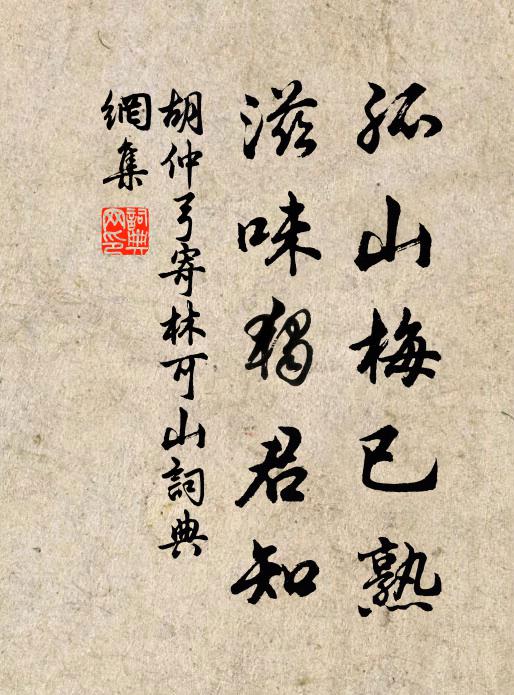 孤山梅已熟
滋味独君知
胡仲弓寄林可山詞典
網集
詞典
网印